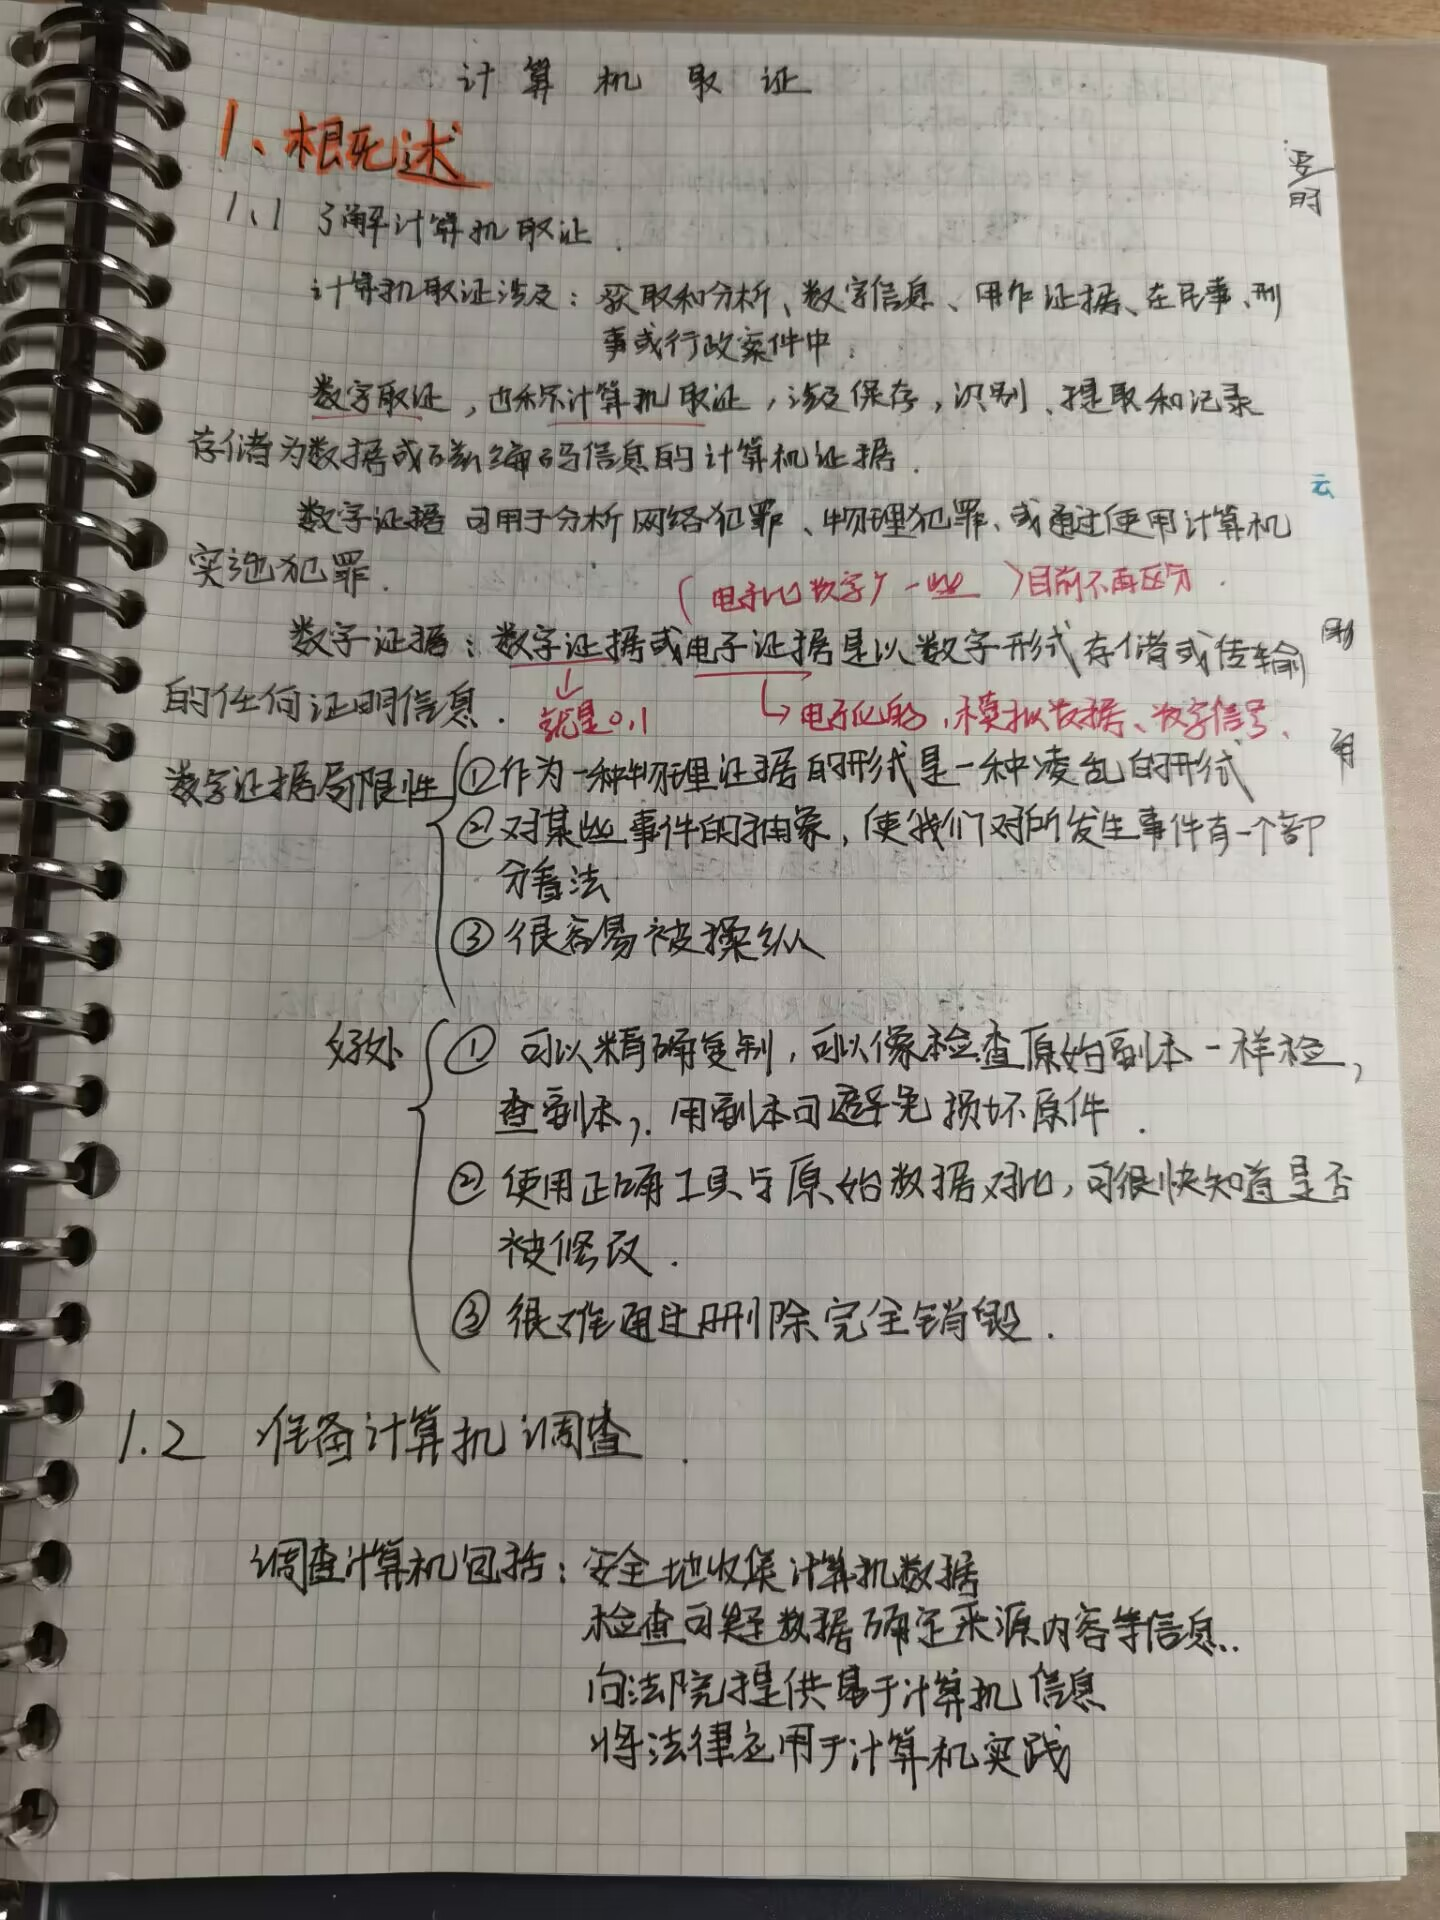 计算机取证
1、概述
1、1 了解计算机取证.
计算机取证涉及：获取和分析、数字信息、用作证据、在民事、刑
事或行政案件中.
数字取证，也称计算机取证，涉及保存，识别、提取和记录
存储为数据或磁编码信息的计算机证据.
数字证据可用于分析网络犯罪、物理犯罪、或通过使用计算机
实施犯罪.
(电子比数字广一些)目前不再区分.
数字证据：数字证据或电子证据是以数字形式存储或传输
的任何证明信息.
就是0,1
电子化的,模拟数据、数字信号、
数字证据局限性
①作为一种物理证据的形式是一种凌乱的形式
②对某些事件的抽象，使我们对所发生事件有一个部
分看法
③很容易被操纵
好处
① 可以精确复制，可以像检查原始副本一样检,
查副本,. 用副本可避免损坏原件.
② 使用正确工具与原始数据对比，可很快知道是否
被修改.
③ 很难通过删除完全销毁.
1.2 准备计算机调查.
调查计算机包括：安全地收集计算机数据
检查可疑数据确定来源内容等信息..
向法院提供基于计算机信息
将法律应用于计算机实践
云